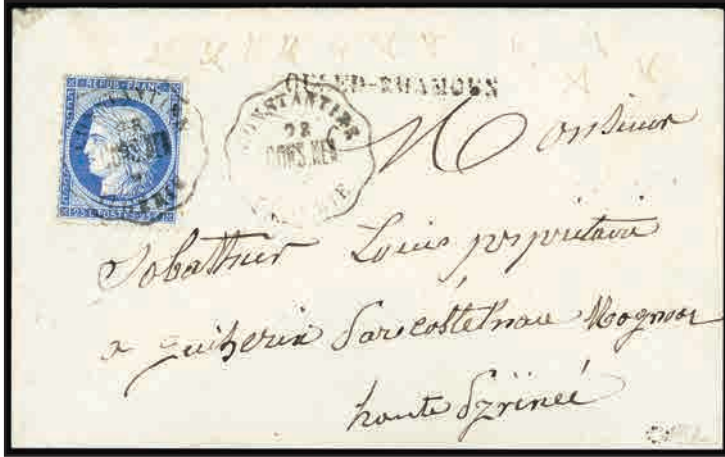 REPUB. FRANC.
25 C. POSTES 25 C.
OULED-RHAMOUN
CONSTANTINE
28
CORS.MEN
Monsieur
Sobathier Louis propriétaire
a Guiherix par costelnau Magnoac
haute Pyrineé